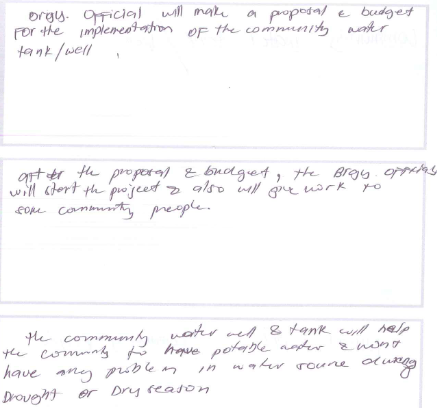 Brgy. Official will make a proposal & budget
For the implementation of the community water
tank/well.
after the proposal & budget, the Brgy. officials
will start the project & also will give work to
some community people.
the community water well & tank will help
the community to have potable water & wont
have any problem in water source during
Drought or Dry season